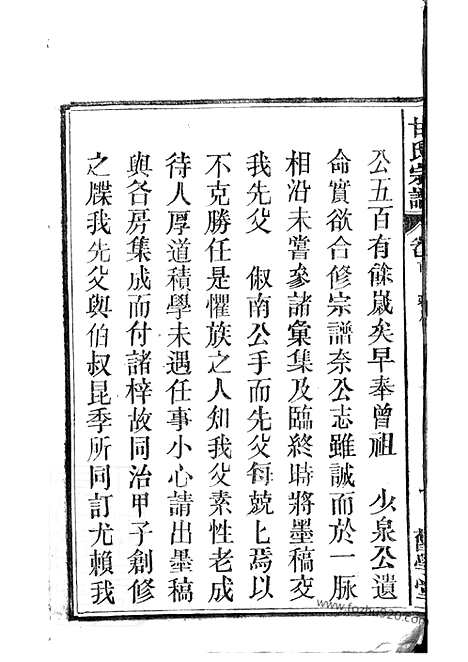 甘氏宗譜
卷首
舊學堂
公五百有餘歲矣早奉曾祖　少泉公遺
命實欲合修宗譜奈公志雖誠而於一脈
相沿未嘗參諸彙集及臨終時將墨稿交
我先父　俶南公手而先父每兢匕焉以
不克勝任是懼族之人知我父素性老成
待人厚道積學未遇任事小心請出墨稿
與各房集成而付諸梓故同治甲子創修
之牒我先父與伯叔昆季所同訂尤賴我
www.fozhu920.com